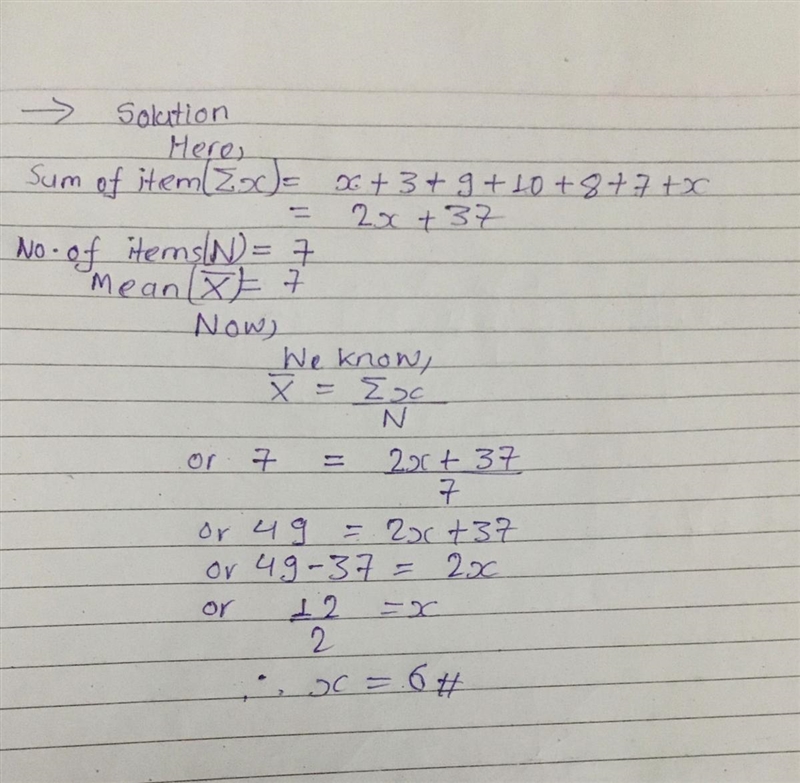 → Solution
Here,
Sum of item(Σx)= x+3+9+10+8+7+x
= 2x+37
No. of items(N)= 7
Mean(X̅)= 7
Now,
We know,
X̅ = Σx
N
or 7 = 2x+37
7
or 49 = 2x+37
or 49-37 = 2x
or 12 =x
2
∴ x = 6#